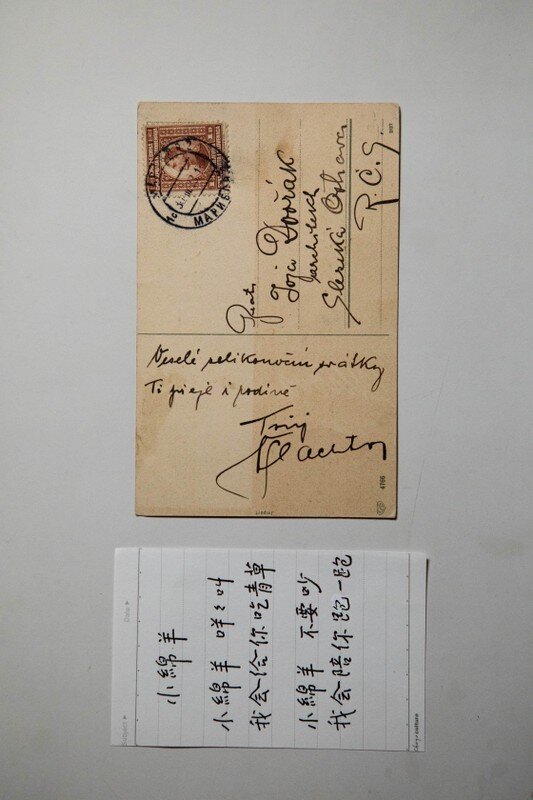 МАРИБОР
Joža Dvořák
architekt
Slezská Ostrava
R.Č.S
Veselé velikonoční svátky
Ti přeje i rodině
Tvůj
4766
Date
Subject
小綿羊
小綿羊 咩々叫
我会给你吃青草
小綿羊 不要吵
我会陪你跑一跑